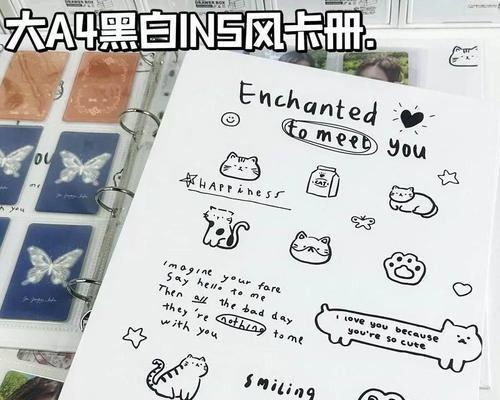 大A4黑白INS风卡册.
Enchanted
to meet you
HAPPINESS
CAT
imagine your fare
Say hello to me
Then all the bad day
they're nothing to me
with you
I love you because
you're so cute
Smiling